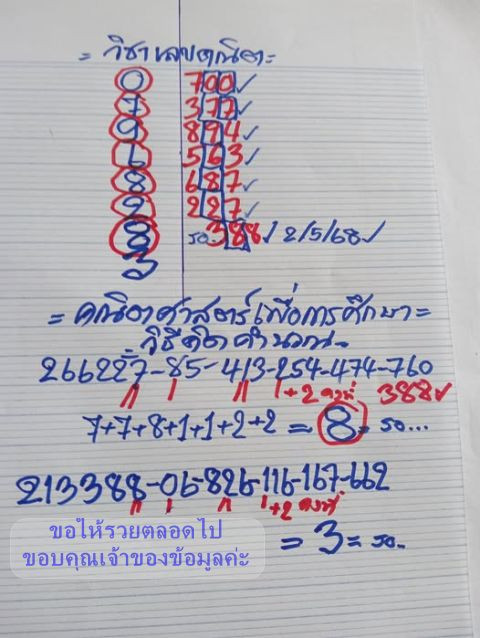 = วิชาเลขคณิต =
0 700 ✓
7 377 ✓
9 894 ✓
6 563 ✓
8 687 ✓
9 227 ✓
8 รอ. 388 ✓ 2/5/68 ✓
3
= คณิตศาสตร์เพื่อการศึกษา =
วิธีคิดคำนวณ
266227-85-413-254-474-760
+2 คงที่ 388 ✓
7+7+8+1+1+2+2 = 8 = รอ...
213388-06-826-116-167-662
+2 คงที่
= 3 = รอ..
ขอให้รวยตลอดไป
ขอบคุณเจ้าของข้อมูลค่ะ